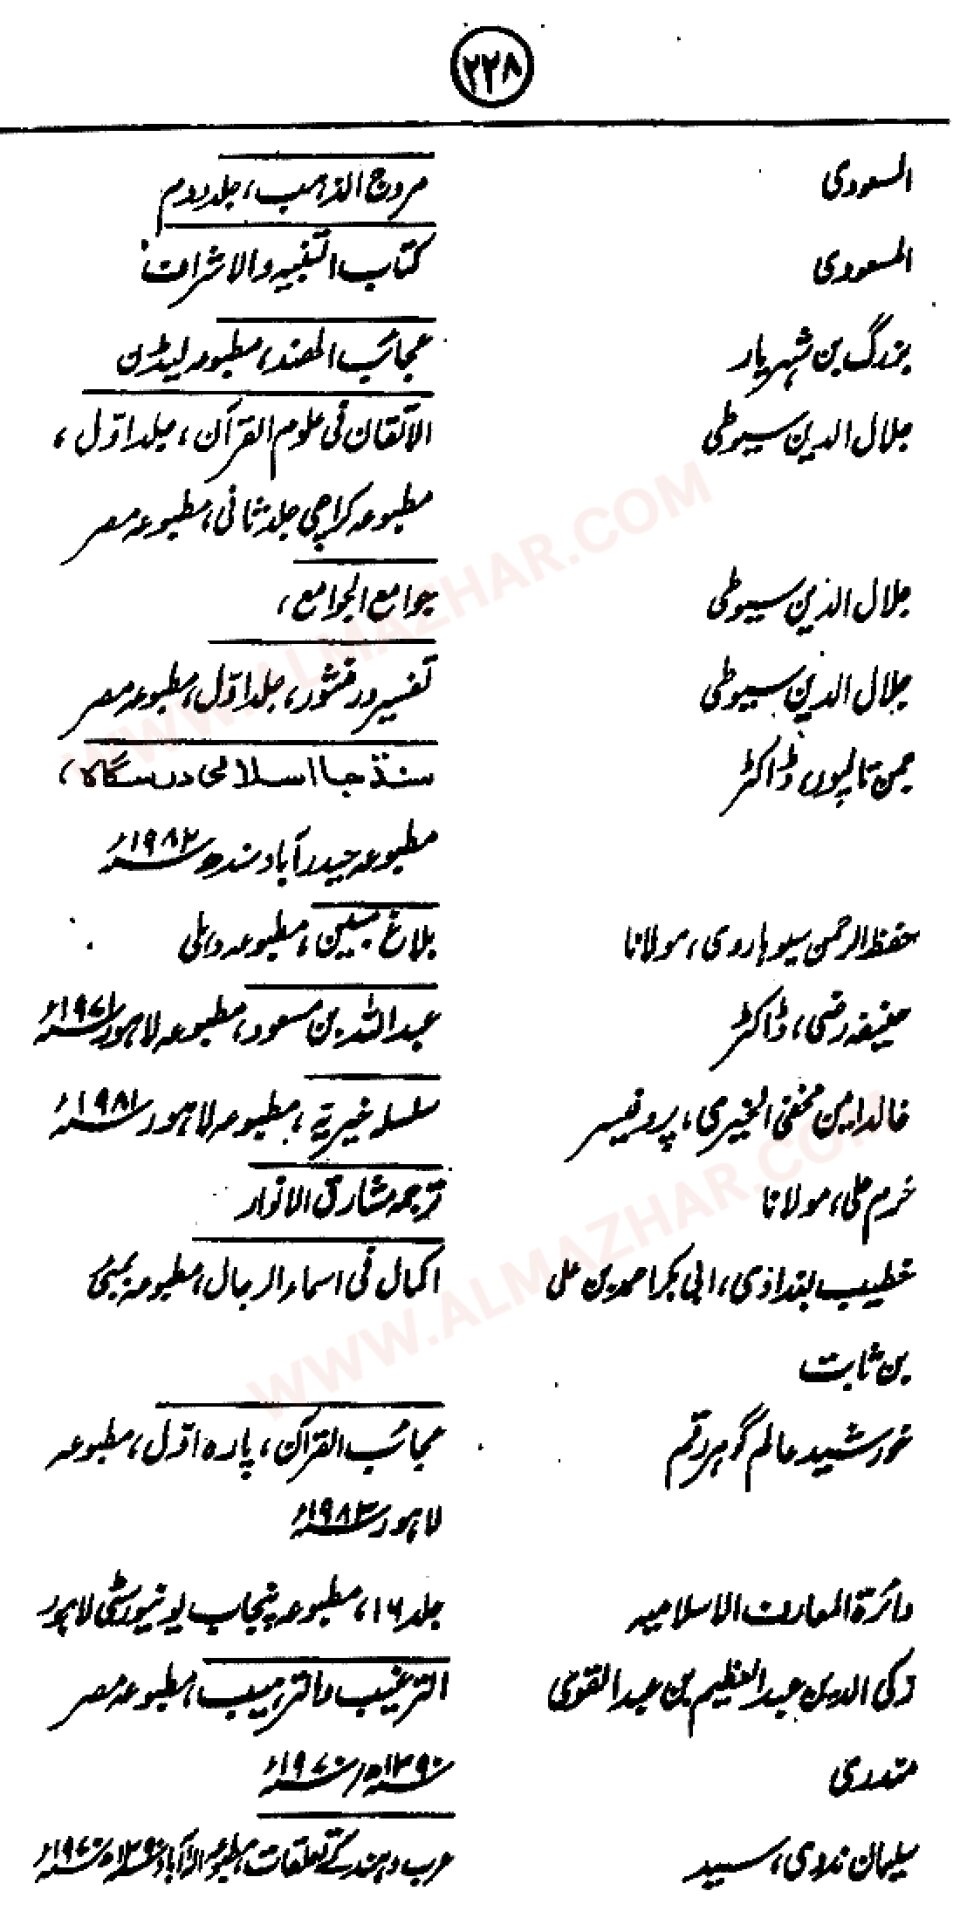 ۲۲۸
المسعودی مروج الذہب، جلد دوم
المسعودی کتاب التنبیہ والاشراف
بزرگ بن شہریار عجائب الھند، مطبوعہ لیڈن
جلال الدین سیوطی الاتقان فی علوم القرآن، جلد اوّل،
مطبوعہ کراچی جلد ثانی، مطبوعہ مصر
جلال الدین سیوطی جوامع الجوامع،
جلال الدین سیوطی تفسیر درمنثور، جلد اوّل، مطبوعہ مصر
جمن تالپور، ڈاکٹر سنڌ جا اسلامی درسگاہ،
مطبوعہ حیدرآباد سندھ ۱۹۸۲ء
حفظ الرحمن سیوہاروی، مولانا بلاغ مبین، مطبوعہ دہلی
حنیفہ رضی، ڈاکٹر عبداللہ بن مسعود، مطبوعہ لاہور ۱۹۷۱ء
خالد امین مخفی الخیری، پروفیسر سلسلہ خیریہ، مطبوعہ لاہور ۱۹۸۱ء
خرم علی، مولانا ترجمہ مشارق الانوار
خطیب بغدادی، ابی بکر احمد بن علی اکمال فی اسماء الرجال، مطبوعہ بمبئی
بن ثابت
خورشید عالم گوہر رقم عجائب القرآن، پارہ اوّل، مطبوعہ
لاہور ۱۹۸۳ء
دائرۃ المعارف الاسلامیہ جلد ۱۶، مطبوعہ پنجاب یونیورسٹی لاہور
زکی الدین عبدالعظیم بن عبدالقوی الترغیب والترہیب، مطبوعہ مصر
منذری ۱۳۹۰ھ/۱۹۷۰ء
سلیمان ندوی، سید عرب و ہند کے تعلقات، مطبوعہ الٰہ آباد ۱۳۹۰ھ ۱۹۷۰ء
WWW.ALMAZHAR.COM
WWW.ALMAZHAR.COM